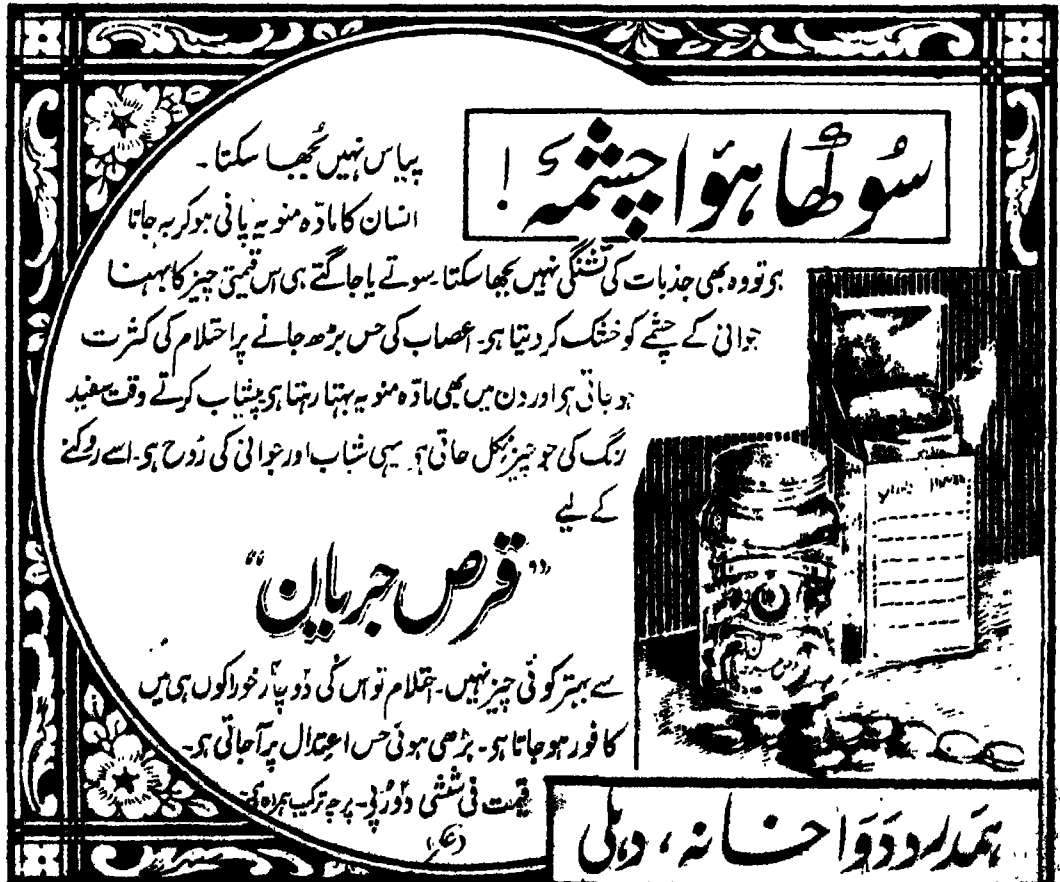 سُوکھا ہؤا چشمہ!
پیاس نہیں بُجھا سکتا۔
انسان کا مادّہ منویہ پانی ہوکر بہ جاتا
ہو تو وہ بھی جذبات کی تشنگی نہیں بجھا سکتا۔ سوتے یا جاگتے ہی اس قیمتی چیز کا بہنا
جوانی کے چشمے کو خشک کر دیتا ہو۔ اعصاب کی حس بڑھ جانے پر احتلام کی کثرت
ہو جاتی ہو اور دن میں بھی مادّہ منویہ بہتا رہتا ہو پیشاب کرتے وقت سفید
رنگ کی جو چیز نکل جاتی ہو۔ یہی شباب اور جوانی کی رُوح ہو۔ اسے روکنے
کے لیے
"قرص جریان"
سے بہتر کوئی چیز نہیں۔ احتلام تو اس کی دو چار خوراکوں ہی میں
کافور ہو جاتا ہو۔ بڑھی ہوئی حس اعتدال پر آجاتی ہو۔
قیمت فی شیشی دو رُپے۔ پرچہ ترکیب ہمراہ ہے۔
ہمدرد دواخانہ، دہلی